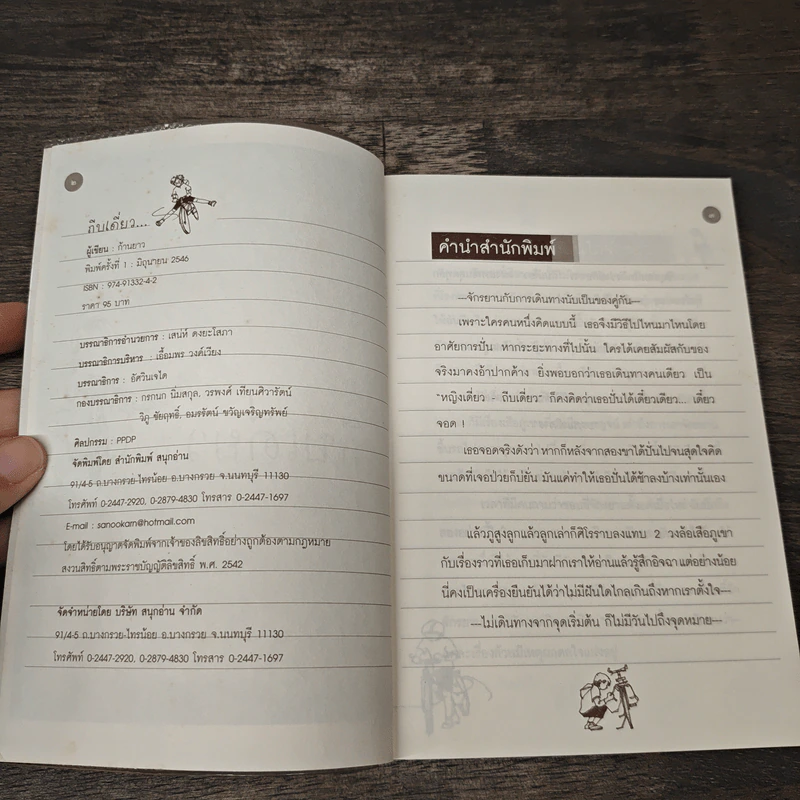 ถีบเดี่ยว...
ผู้เขียน : ก้านยาว
พิมพ์ครั้งที่ 1 : มิถุนายน 2546
ISBN : 974-91332-4-2
ราคา 95 บาท
บรรณาธิการอำนวยการ : เสน่ห์ ดงยะโสภา
บรรณาธิการบริหาร : เอื้อมพร วงค์เวียง
บรรณาธิการ : อัศวินเจได
กองบรรณาธิการ : กรกนก นิ่มสกุล, วรพงศ์ เทียนศิวารัตน์
วิภู ชัยฤทธิ์, อมรรัตน์ ขวัญเจริญทรัพย์
ศิลปกรรม : PPDP
จัดพิมพ์โดย สำนักพิมพ์ สนุกอ่าน
91/4-5 ถ.บางกรวย-ไทรน้อย อ.บางกรวย จ.นนทบุรี 11130
โทรศัพท์ 0-2447-2920, 0-2879-4830 โทรสาร 0-2447-1697
E-mail : sanookarn@hotmail.com
โดยได้รับอนุญาตจัดพิมพ์จากเจ้าของลิขสิทธิ์อย่างถูกต้องตามกฎหมาย
สงวนสิทธิ์ตามพระราชบัญญัติลิขสิทธิ์ พ.ศ. 2542
จัดจำหน่ายโดย บริษัท สนุกอ่าน จำกัด
91/4-5 ถ.บางกรวย-ไทรน้อย อ.บางกรวย จ.นนทบุรี 11130
โทรศัพท์ 0-2447-2920, 0-2879-4830 โทรสาร 0-2447-1697
คำนำสำนักพิมพ์
---จักรยานกับการเดินทางนับเป็นของคู่กัน---
เพราะใครคนหนึ่งคิดแบบนี้ เธอจึงมีวิธีไปไหนมาไหนโดย
อาศัยการปั่น หากระยะทางที่ไปนั้น ใครได้เคยสัมผัสกับของ
จริงมาคงอ้าปากค้าง ยิ่งพอบอกว่าเธอเดินทางคนเดียว เป็น
"หญิงเดี่ยว - ถีบเดี่ยว" ก็คงคิดว่าเธอปั่นได้เดี๋ยวเดียว... เดี๋ยว
จอด !
เธอจอดจริงดังว่า หากก็หลังจากสองขาได้ปั่นไปจนสุดใจคิด
ขนาดที่เจอป่วยก็บ่ยั่น มันแค่ทำให้เธอปั่นได้ช้าลงบ้างเท่านั้นเอง
แล้วภูสูงลูกแล้วลูกเล่าก็ศิโรราบลงแทบ 2 วงล้อเสือภูเขา
กับเรื่องราวที่เธอเก็บมาฝากเราให้อ่านแล้วรู้สึกอิจฉา แต่อย่างน้อย
นี่คงเป็นเครื่องยืนยันได้ว่าไม่มีฝันใดไกลเกินถึงหากเราตั้งใจ---
---ไม่เดินทางจากจุดเริ่มต้น ก็ไม่มีวันไปถึงจุดหมาย---